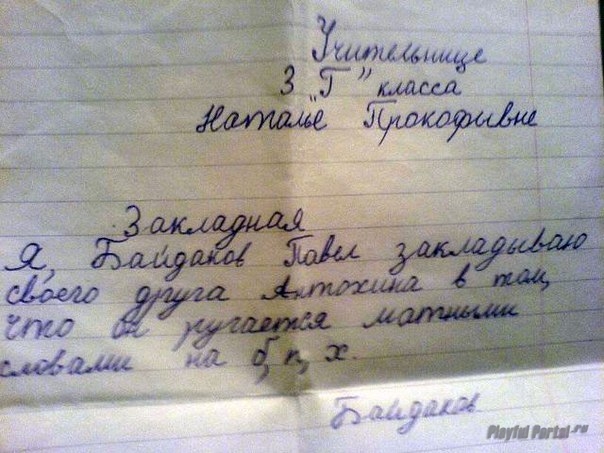 Учительнице
3 „Г” класса
Наталье Прокофивне
Закладная
Я, Байдаков Павел закладываю
своего друга Антохина в том,
что он ругается матными
словами на б, п, х.
Байдаков
Playful Portal.ru